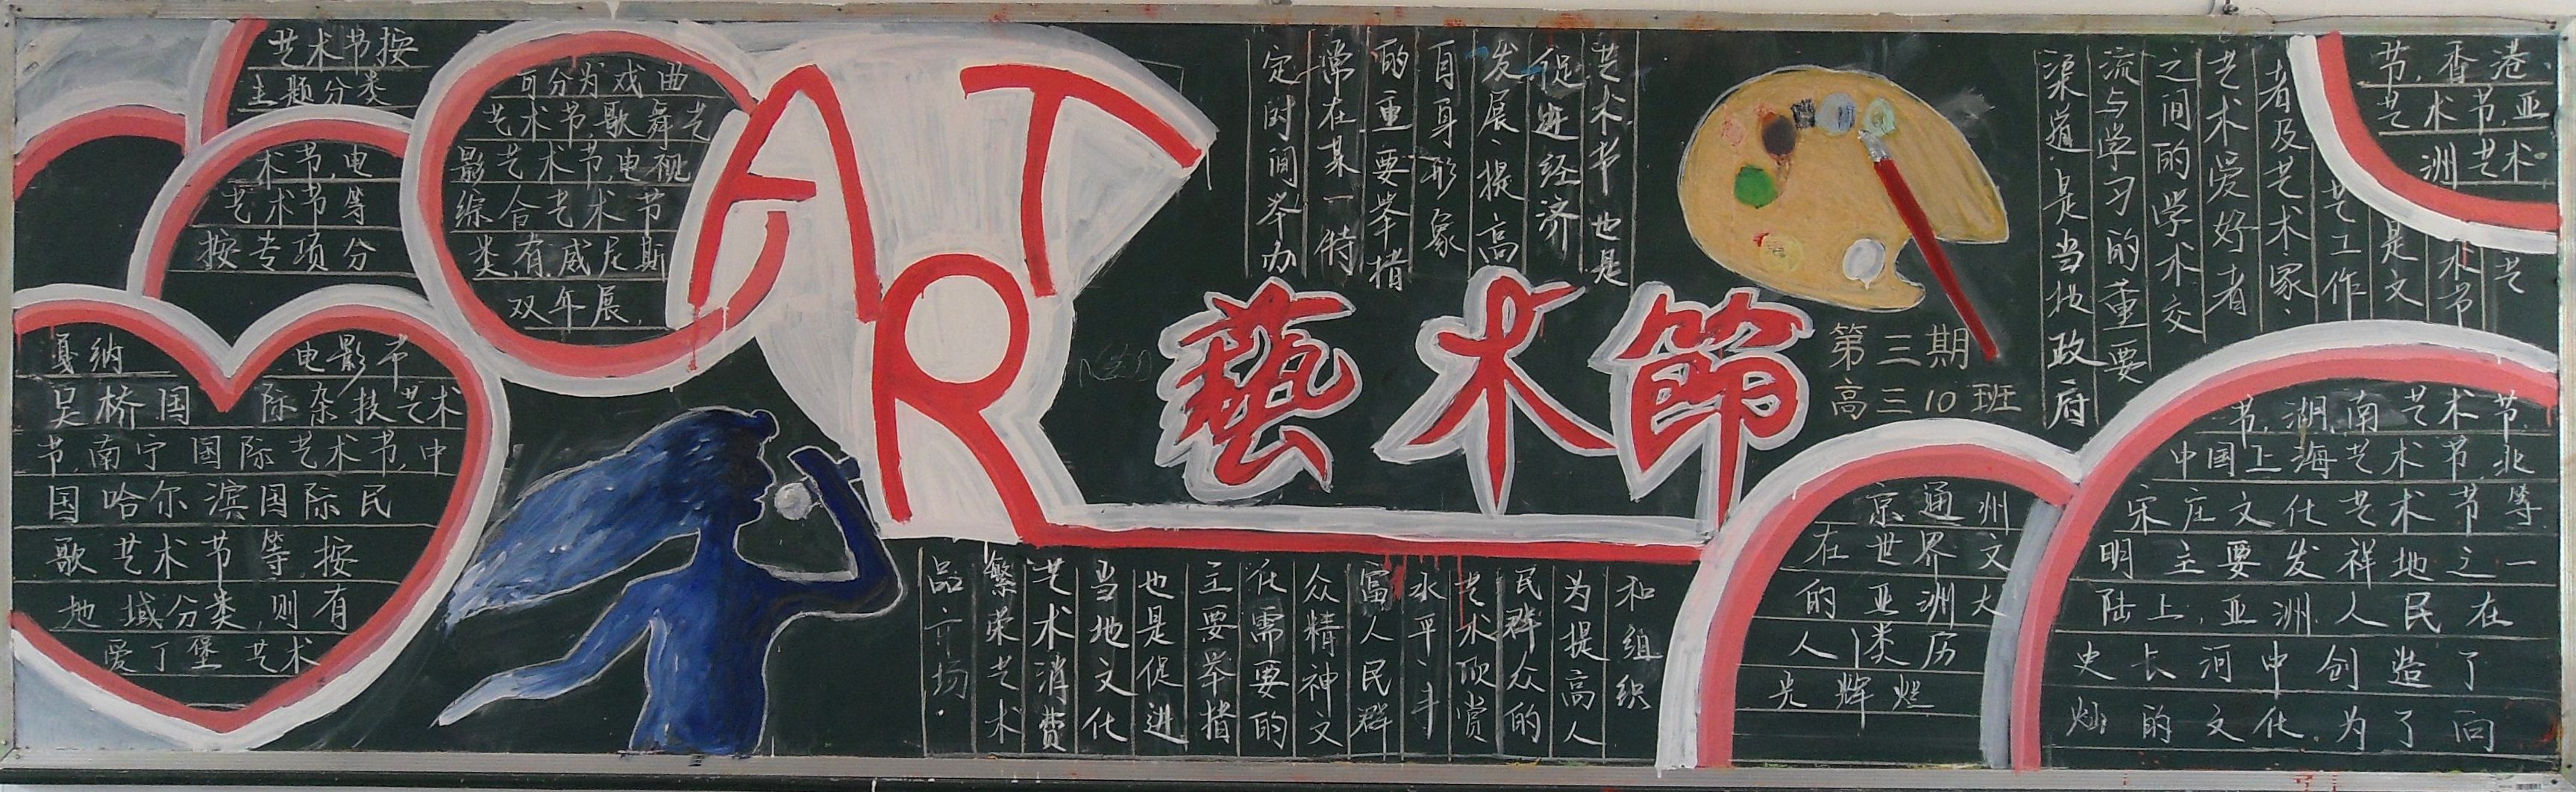 艺术节按
主题分类
可分为戏曲
艺术节,歌舞艺
术节,电
影艺术节,电视
艺术节等
综合艺术节
按专项分
类,有威尼斯
双年展,
戛纳 电影节
吴桥国 际杂技艺术
节,南宁国际艺术节,中
国哈尔滨国际民
歌艺术节等,按
地域分类,则有
爱丁堡艺术
ART
藝术節
第三期
高三10班
艺术节也是
促进经济
发展、提高
自身形象
的重要举措
常在某一特
定时间举办
节,香港
艺术节,亚
洲艺术
艺
术节
是文
艺工作
者及艺术家、
艺术爱好者
之间的学术交
流与学习的重要
渠道,是当地政府
和组织
为提高人
民群众的
艺术欣赏
水平、丰
富人民群
众精神文
化需要的
主要举措
也是促进
当地文化
艺术消费
繁荣艺术
品市场.
节,湖南艺术节,
中国上海艺术节,北
京通州
宋庄文化艺术节等
在世界文
明主要发祥地之一
的亚洲大
陆上,亚洲人民在
人类历
史长河中创造了
光辉灿
烂的文化.为了向